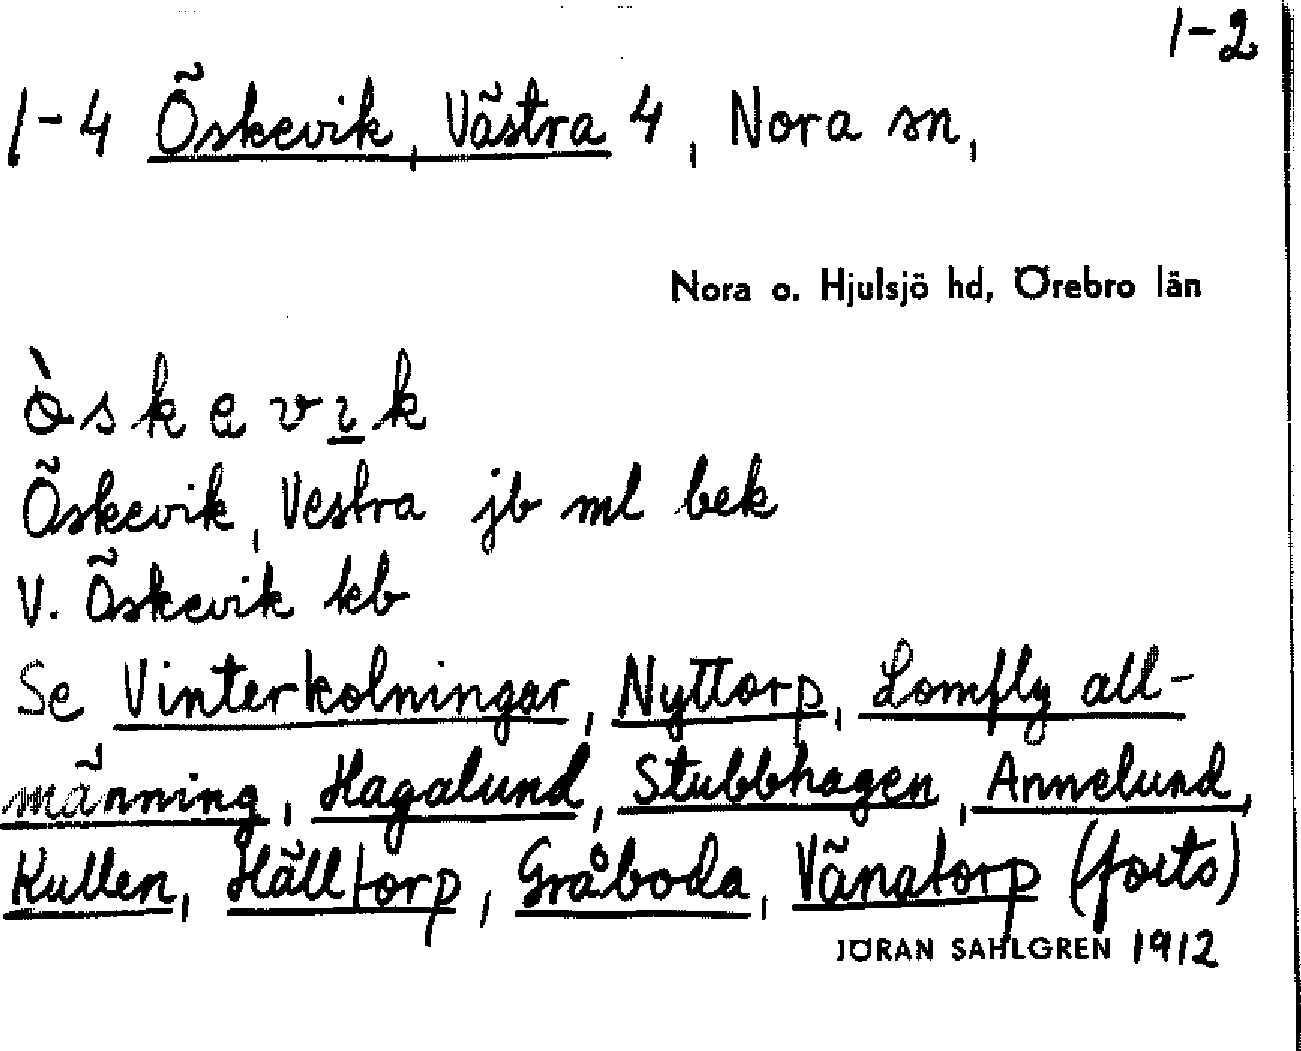 1-2
1-4 Öskevik, Västra 4, Nora sn,
Nora o. Hjulsjö hd, Örebro län
Öskevik, Vestra jb ml bek
V. Öskevik kb
Se Vinterkolningar, Nyttorp, Lomfly all-
männing, Hagalund, Stubbhagen, Annelund,
Kullen, Hälltorp, Gråboda, Vänatorp (forts)
JÖRAN SAHLGREN 1912